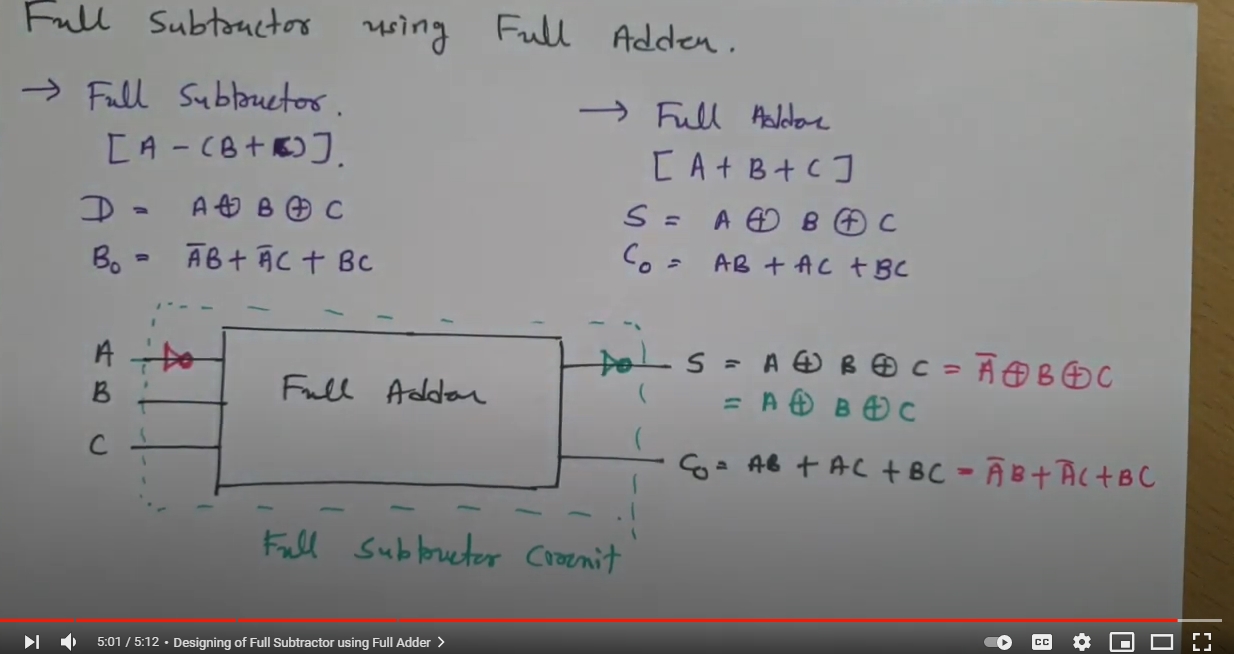 Full Subtractor using Full Adder.
→ Full Subtractor.
[A - (B + C)].
D = A ⊕ B ⊕ C
B₀ = A̅B + A̅C + BC
→ Full Adder
[A + B + C]
S = A ⊕ B ⊕ C
C₀ = AB + AC + BC
A
B
C
Full Adder
S = A ⊕ B ⊕ C = A̅ ⊕ B ⊕ C
= A ⊕ B ⊕ C
C₀ = AB + AC + BC = A̅B + A̅C + BC
Full Subtractor Circuit
5:01 / 5:12 • Designing of Full Subtractor using Full Adder >
CC